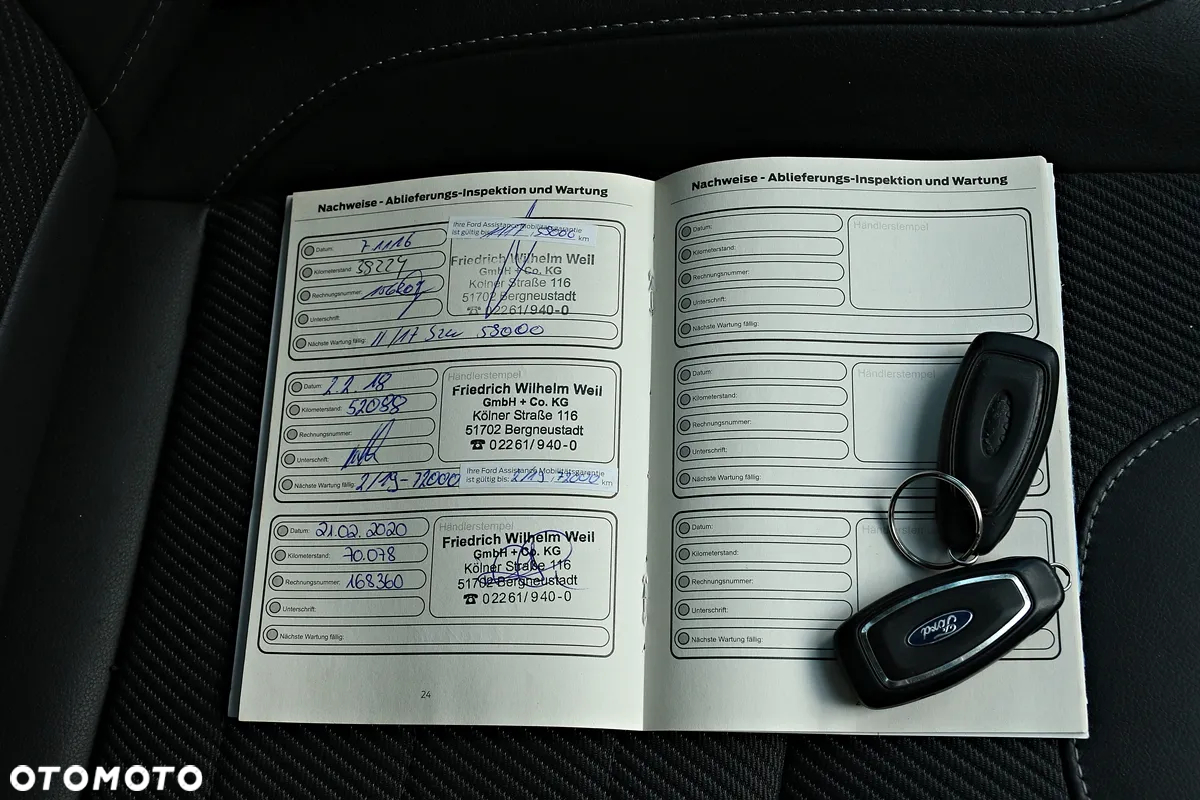 Nachweise - Ablieferungs-Inspektion und Wartung
Ihre Ford Assistance Mobilitätsgarantie
ist gültig bis: 11/17, 58000 km
Datum: 7.11.16
Kilometerstand: 38224
Rechnungsnummer:
Unterschrift:
Nächste Wartung fällig: 11/17 58000
Friedrich Wilhelm Weil
GmbH + Co. KG
Kölner Straße 116
51702 Bergneustadt
☎ 02261/940-0
Datum: 2.2.18
Kilometerstand: 52098
Rechnungsnummer:
Unterschrift:
Nächste Wartung fällig: 2/19-72000
Händlerstempel
Friedrich Wilhelm Weil
GmbH + Co. KG
Kölner Straße 116
51702 Bergneustadt
☎ 02261/940-0
Ihre Ford Assistance Mobilitätsgarantie
ist gültig bis: 2/19, 72000 km
Datum: 21.02.2020
Kilometerstand: 70.078
Rechnungsnummer: 168360
Unterschrift:
Nächste Wartung fällig:
Händlerstempel
Friedrich Wilhelm Weil
GmbH + Co. KG
Kölner Straße 116
51702 Bergneustadt
☎ 02261/940-0
24
Nachweise - Ablieferungs-Inspektion und Wartung
Datum:
Kilometerstand:
Rechnungsnummer:
Unterschrift:
Nächste Wartung fällig:
Händlerstempel
Datum:
Kilometerstand:
Rechnungsnummer:
Unterschrift:
Nächste Wartung fällig:
Händlerstempel
Datum:
Kilometerstand:
Rechnungsnummer:
Unterschrift:
Nächste Wartung fällig:
Ford
OTOMOTO